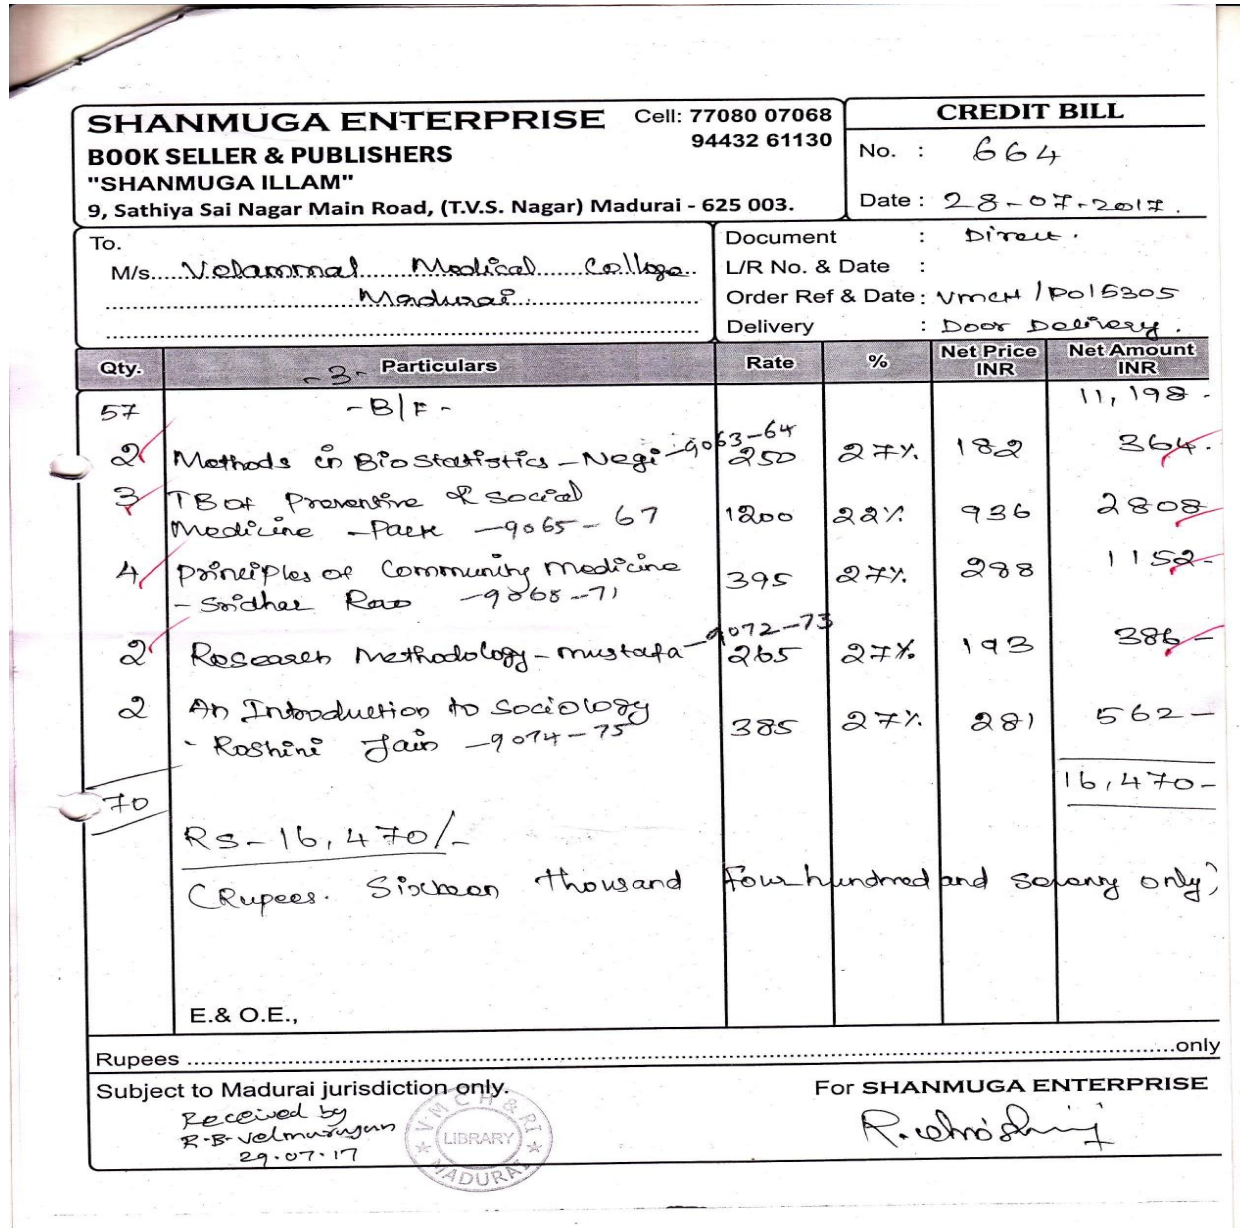 SHANMUGA ENTERPRISE Cell: 77080 07068
94432 61130
BOOK SELLER & PUBLISHERS
"SHANMUGA ILLAM"
9, Sathiya Sai Nagar Main Road, (T.V.S. Nagar) Madurai - 625 003.
CREDIT BILL
No. : 664
Date : 28-07-2017.
To.
M/s. Velammal Medical College
Madurai
Document : Direct.
L/R No. & Date :
Order Ref & Date : VMCH/PO15305
Delivery : Door Delivery.
Qty. -3- Particulars Rate % Net Price INR Net Amount INR
57 -B/F- 11,198-
2 Methods in BioStatistics - Negi - 9063-64 250 27% 182 364-
3 TB of Preventive & Social
Medicine - Park - 9065-67 1200 22% 936 2808-
4 Principles of Community Medicine
- Sridhar Rao - 9068-71 395 27% 288 1152-
2 Research Methodology - Mustafa - 9072-73 265 27% 193 386-
2 An Introduction to Sociology
- Roshini Jain - 9074-75 385 27% 281 562-
70 16,470-
Rs-16,470/-
(Rupees. Sixteen thousand four hundred and seventy only)
E.& O.E.,
Rupees only
Subject to Madurai jurisdiction only.
For SHANMUGA ENTERPRISE
Received by
R.B. Velmurugan
29.07.17
VMCH & RI
LIBRARY
MADURAI